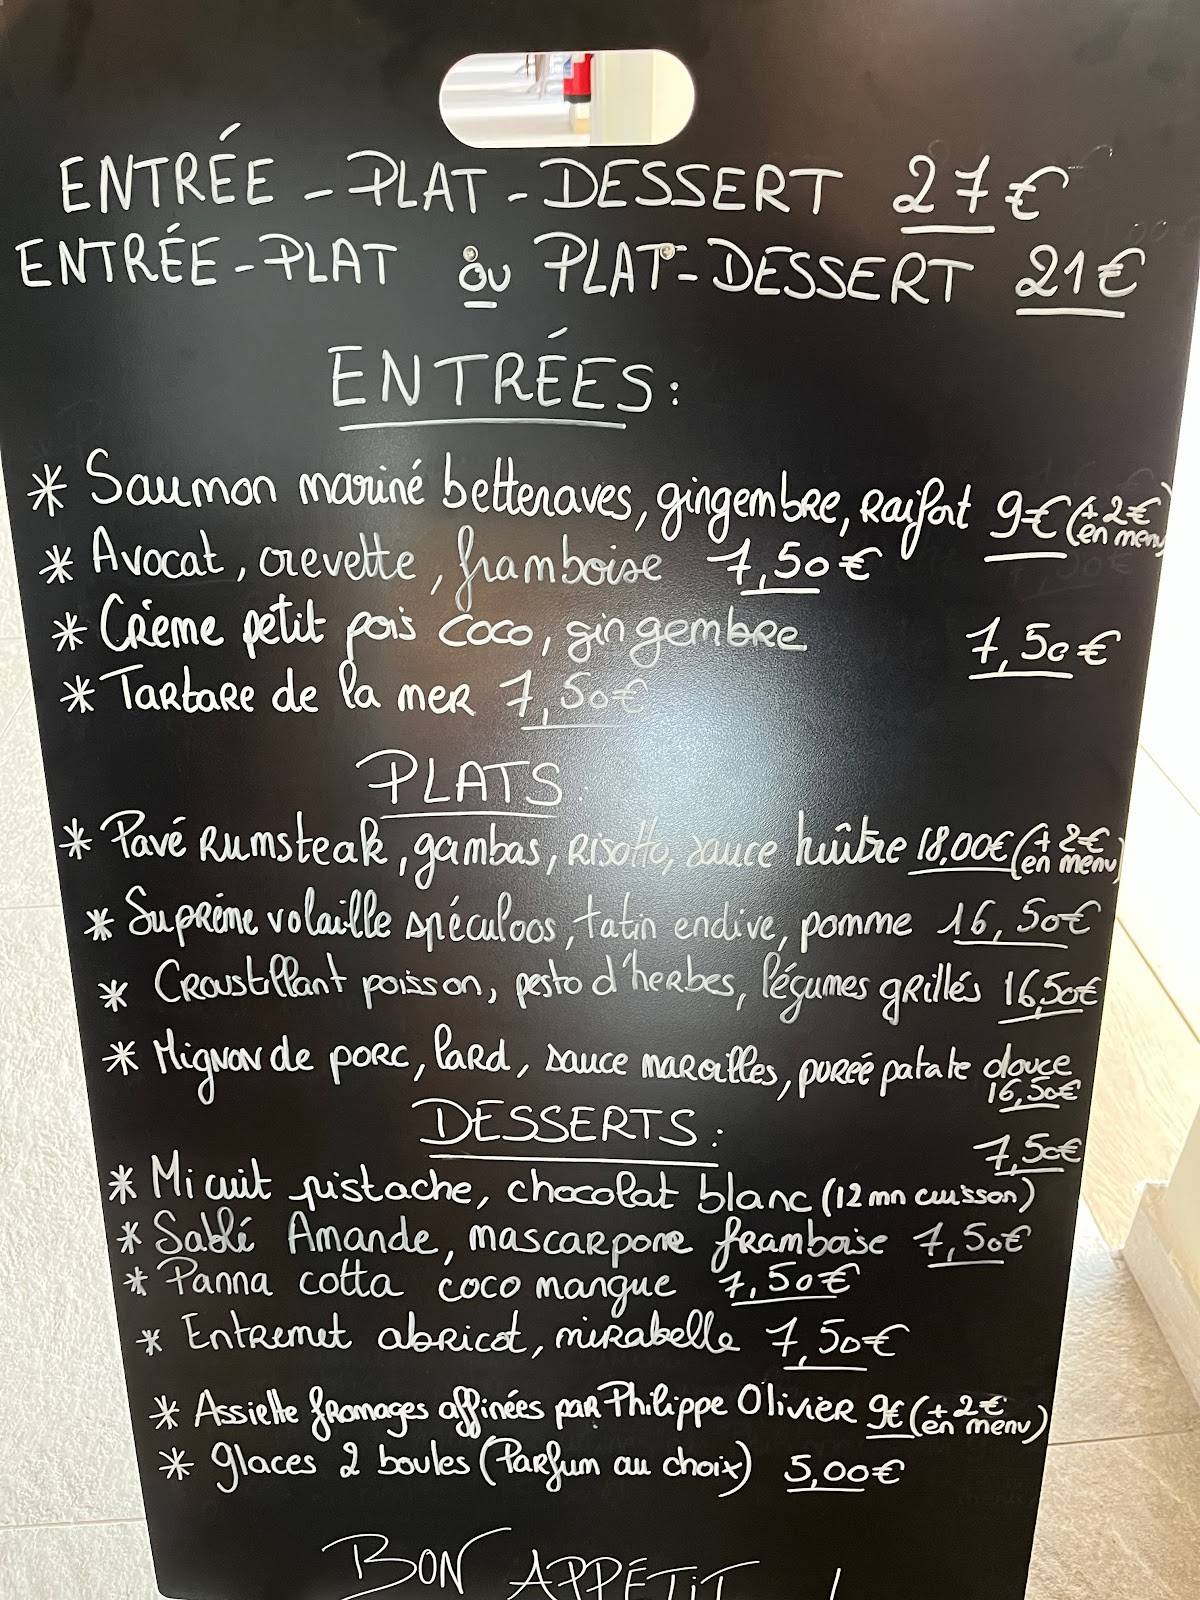 ENTRÉE - PLAT - DESSERT 27€
ENTRÉE - PLAT ou PLAT - DESSERT 21€
ENTRÉES :
* Saumon mariné betteraves, gingembre, raifort 9€ (+ 2€ en menu)
* Avocat, crevette, framboise 7,50€
* Crème petit pois coco, gingembre 7,50€
* Tartare de la mer 7,50€
PLATS :
* Pavé Rumsteak, gambas, risotto, sauce huître 18,00€ (+ 2€ en menu)
* Suprême volaille spéculoos, tatin endive, pomme 16,50€
* Croustillant poisson, pesto d'herbes, légumes grillés 16,50€
* Mignon de porc, lard, sauce maroilles, purée patate douce
16,50€
DESSERTS :
7,50€
* Mi cuit pistache, chocolat blanc (12 mn cuisson)
* Sablé Amande, mascarpone framboise 7,50€
* Panna cotta coco mangue 7,50€
* Entremet abricot, mirabelle 7,50€
* Assiette fromages affinées par Philippe Olivier 9€ (+ 2€ en menu)
* Glaces 2 boules (Parfum au choix) 5,00€
BON APPÉTIT !